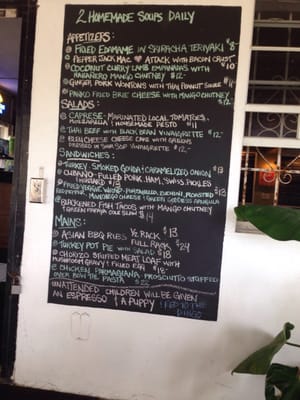 2 HOMEMADE SOUPS DAILY
APPETIZERS:
FRIED EDAMAME IN SRIRACHA TERIYAKI $8
PEPPER JACK MAC ATTACK WITH BACON CRUST
COCONUT CURRY LAMB EMPANADAS WITH $10
HABAÑERO MANGO CHUTNEY $12-
GINGER PORK WONTONS WITH THAI PEANUT SAUCE $11
PANKO FRIED BRIE CHEESE WITH MANGO CHUTNEY
$12-
SALADS:
CAPRESE-MARINATED LOCAL TOMATOES,
MOZZARELLA + HOMEMADE PESTO $11
THAI BEEF WITH BLACK BEAN VINAIGRETTE $12-
BLEU CHEESE CAKE WITH GREENS
DRESSED IN VINAIGRETTE $12-
SANDWICHES:
TURKEY, SMOKED GOUDA + CARAMELIZED ONION $13
CUBANO-PULLED PORK, HAM, SWISS, PICKLES
+ MUSTARD $13
FRIED VEGGIE WRAP- ZUCCHINI, ROASTED
MANCHEGO CHEESE + GREEN GODDESS $13
BLACKENED FISH TACOS WITH MANGO CHUTNEY
+ COLE SLAW $14
MAINS:
ASIAN BBQ RIBS ½ RACK $13
FULL RACK $24
TURKEY POT PIE WITH SALAD $18
CHORIZO STUFFED MEAT LOAF WITH
MUSHROOM GRAVY + FRIED EGG $18
CHICKEN PARMAGIANA PROSCIUTTO STUFFED
OVER PASTA $22
UNATTENDED CHILDREN WILL BE GIVEN
AN ESPRESSO + A PUPPY FED TO THE
DINGO